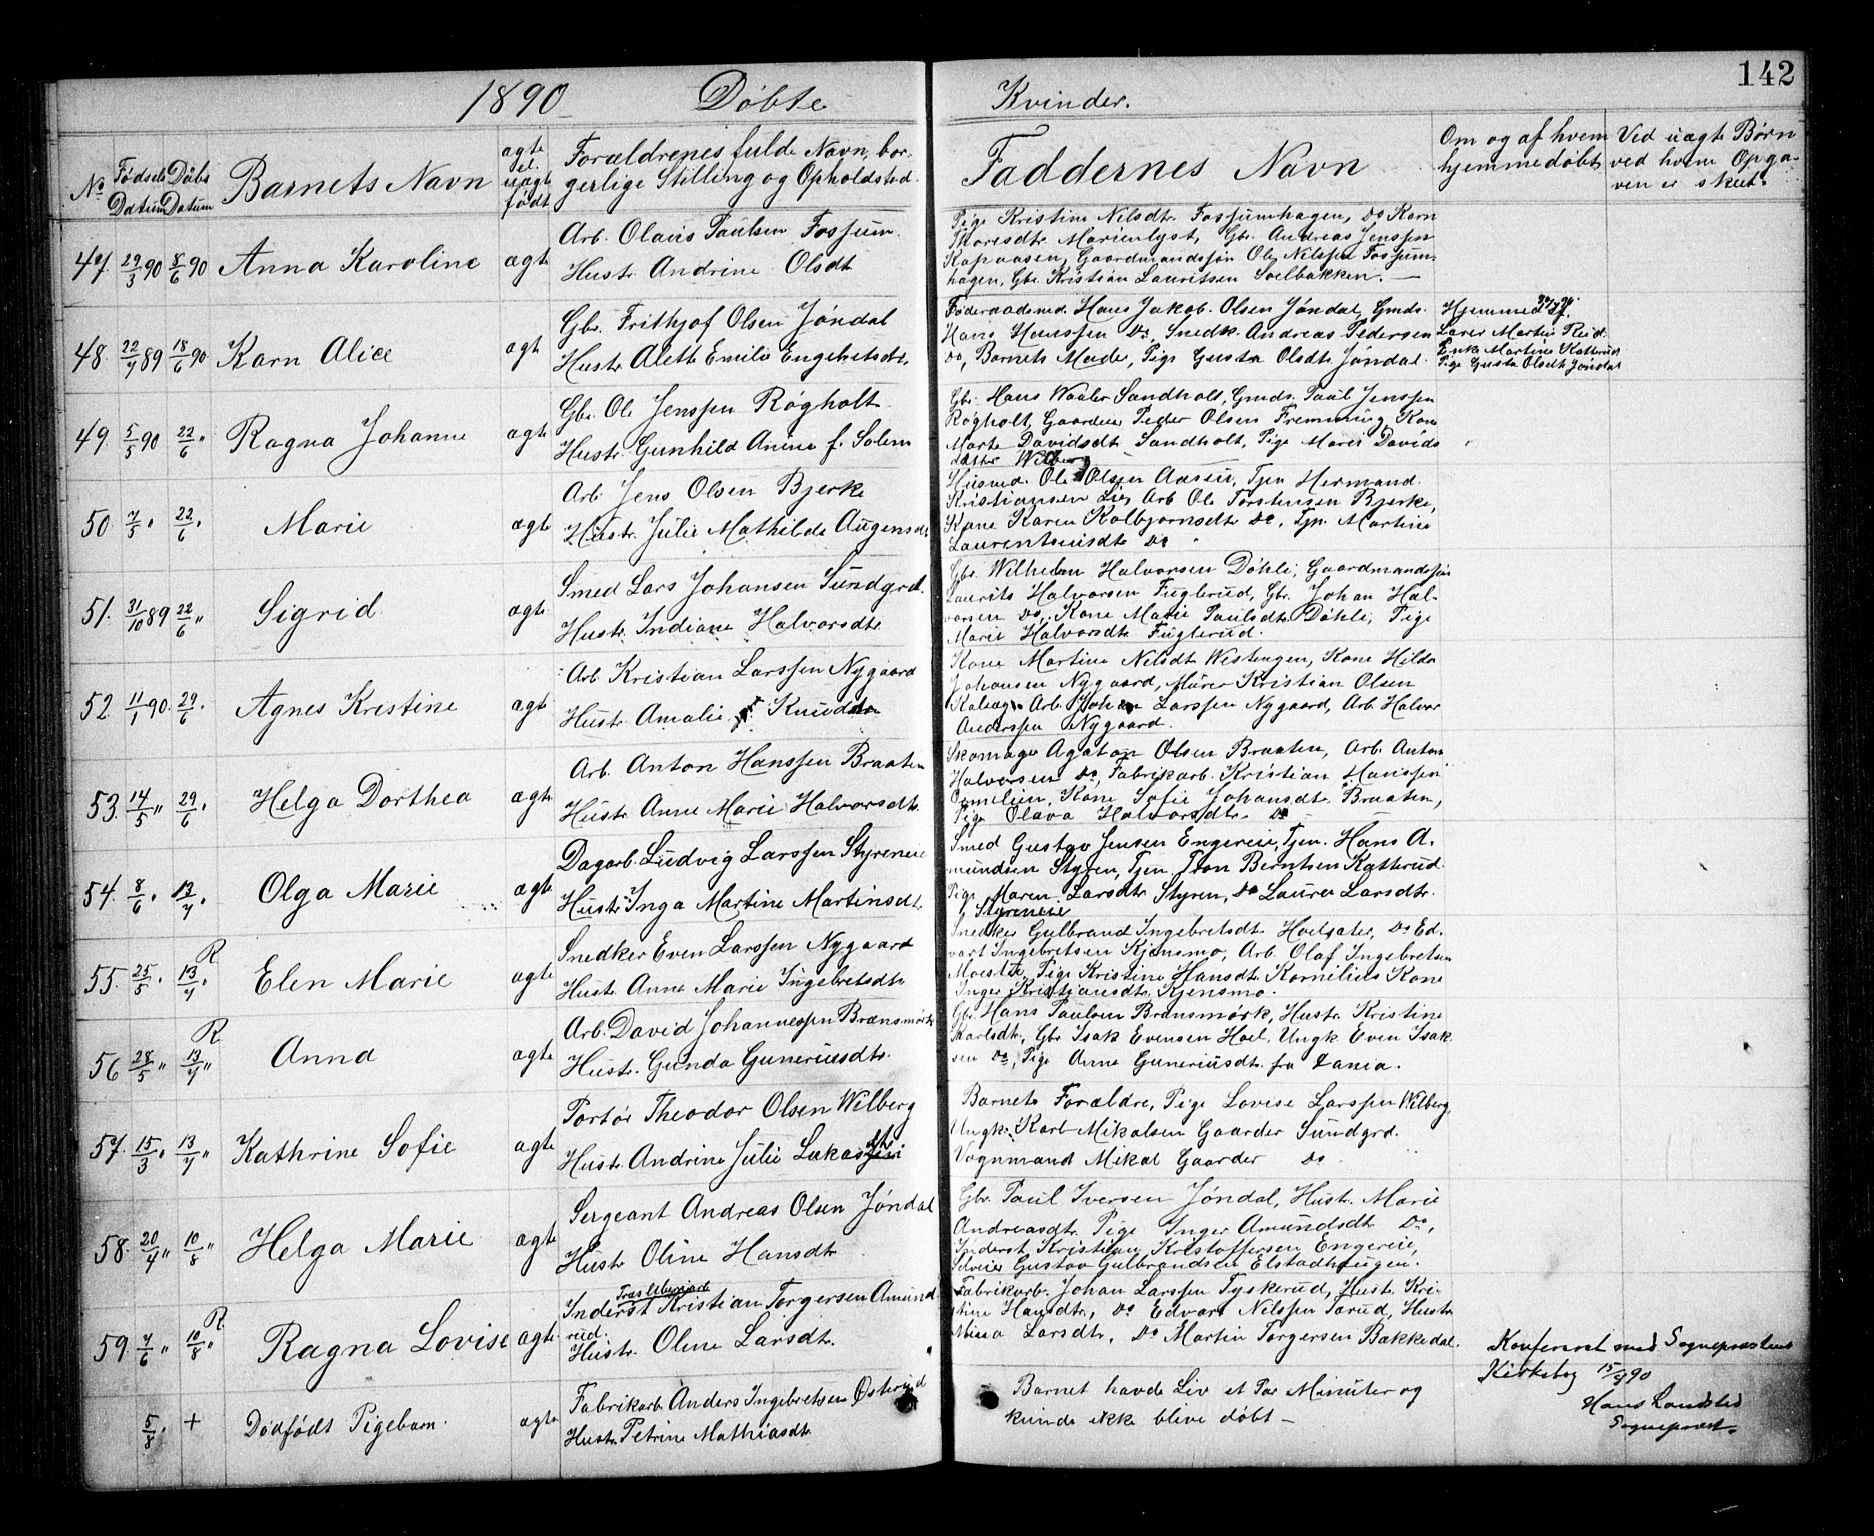 142
1890 Døbte Kvinder.
No Fødsels Datum Daabs Datum Barnets Navn ægte el. uægte født Forældrenes fulde Navn, borgerlige Stilling og Opholdsted. Faddernes Navn Om og af hvem hjemmedøbt Ved uægte Børn ved hvem Opgaven er skeet.
47. 29/3 90 8/6 90 Anna Karoline ægte
Arb. Olaus Paulsen Fossum.
Hustr. Andrine Olsdt
Pige Kristine Nilsdtr. Fossumhagen, Do Karn
Thorsdtr. Marienlyst, Gbr. Andreas Jenssen
Kapaasen, Gaardmandssøn Ole Nilssen Fossum-
hagen, Gbr. Kristian Lauritsen Soelbakken.
48. 22/7 89 18/6 90 Karn Alice ægt
Gbr. Frithjof Olsen Jøndal
Hustr. Aleth Emilie Engebretsdtr.
Føderaadsmd. Hans Jakob Olsen Jøndal, Gmds.
Hans Hanssen Do. Snedk. Andreas Pedersen
Do, Barnets Moder, Pige Gusta Olsdtr Jøndal.
Hjemmedøbt
Lærer Martin Reid.
Enke Martine Katterud
Pige Gusta Olsdt Jøndal
49. 5/5 90 22/6 " Ragna Johanne ægte
Gbr. Ole Jenssen Røgholt
Hustr. Gunhild Anine f. Solem
Gbr. Hans Waaler Sandholt, Gmds. Paul Jenssen
Røgholt, Gaardm. Peder Olsen Fremming, Kone
Marte Davidsdt Sandholt, Pige Marie Davids
datter Wilberg
50. 7/5 " 22/6 " Marie ægte
Arb. Jens Olsen Bjerke
Hustr. Julie Mathilde Augensdt
Husmd. Ole Olsen Aasen, Tjen Hermand
Kristiansen Lie, Arb Ole Torstensen Bjerke,
Kone Karen Kolbjørnsdtr Do, Tjn. Martine
Laurentsuisdtr Do
51. 31/10 89 22/6 " Sigrid ægte
Smed Lars Johansen Sundgrd.
Hustr. Indiane Halvorsdtr
Gbr. Wilhelm Halvorsen Døhli, Gaardmandssøn
Laurits Halvorsen Fuglerud, Gbr. Johan Hal-
vorsen Do, Kone Marie Paulsdtr Døhli, Pige
Marie Halvorsdtr Fuglerud.
52. 11/1 90. 29/6 " Agnes Kristine ægte
Arb. Kristian Larssen Nygaard
Hustr Amalie Knudtn
Kone Martine Nilsdtr Westengen, Kone Hilda
Johansen Nygaard, Murer Kristian Olsen
Arb. Johan Larssen Nygaard, Arb. Halvor
Anderssen Nygaard.
53. 14/5 " 29/6 " Helga Dorthea ægte
Arb. Anton Hanssen Braaten
Hustr Anne Marie Halvorsdtr.
Skomager Agaton Olsen Braaten, Arb. Anton
Halvorsen Do, Fabrikarb. Kristian Hanssen
Kone Sofie Johansdtr. Braaten,
Pige Olava Halvorsdtr. Do
54. 8/6 " 13/7 " Olga Marie ægte
Dagarb. Ludvig Larssen Styreneie
Hustr Inga Martine Martinsdtr
Smed Gustav Jensen Engereie, Tjen. Hans A-
mundsen Styren, Tjen Iron Berntsen Katterud.
Pige Maren Larsdtr Styren, Do Laura Larsdtr.
Styreneie
55. 25/5 " 13/7 " R Elen Marie ægte
Snedker Even Larssen Nygaard
Hustr. Anne Marie Ingebretsdtr
Snedker Gulbrand Ingebretsdt Hoelsæter, Do Ed-
vart Ingebretsen Kjensmo, Arb. Olaf Ingebretsen
Moestue, Pige Kristine Hansdtr Kornelius Kone
Inger Kristiansdtr. Kjensmo.
56 28/5 " 13/7 " R Anna ægte
Arb. David Johannessen Brænsmørk
Hustr. Gunda Guneriusdtr.
Gbr. Hans Paulsen Brænsmørk, Hustr Kristine
Karlsdtr, Gbr Isak Evensen Hoel, Ungk Even Isak-
sen Do, Pige Anne Guneriusdtr. fra Dania.
57. 15/3 " 13/7 " Kathrine Sofie ægte
Portør Theodor Olsen Wilberg
Hustr Andrine Julie Lukasdtr
Barnets Forældre, Pige Lovise Larssen Wilberg,
Ungk. Karl Mikalsen Gaarder Sundgrd.
Vognmand Mikal Gaarder Do
58. 20/4 " 10/8 " Helga Marie ægte
Sergeant Andreas Olsen Jøndal
Hustr Oline Hansdtr
Gbr. Paul Iversen Jøndal, Hustr. Marie
Andreasdtr. Pige Inger Amundsdt Do,
Inderst Kristian Kristoffersen Engereie,
Selveier Gustav Gulbrandsen Elstadhaugen.
59. 7/6 " 10/8 " R Ragna Lovise ægte
Træsliberiarb
Inderst Kristian Torgersen Amund
rud.
Hustr. Oline Larsdtr.
Fabrikarb. Johan Larssen Tyskerud, Hustr. Kri-
stine Hansdtr, Do Edvart Nilssen Torud, Hustr
Mina Larsdtr, Do Martin Torgersen Bakkedal.
5/8 " + Dødfødt Pigebarn. ægte
Fabrikarb Anders Ingebretsen Østerud
Hustr. Petrine Mathiasdtr
Barnet havde Liv et Par Minuter og
kunde ikke blive døbt –
Konfereret med Sognepræstens
Kirkebog 15/9 90
Hans Landsted
Sognepræst.